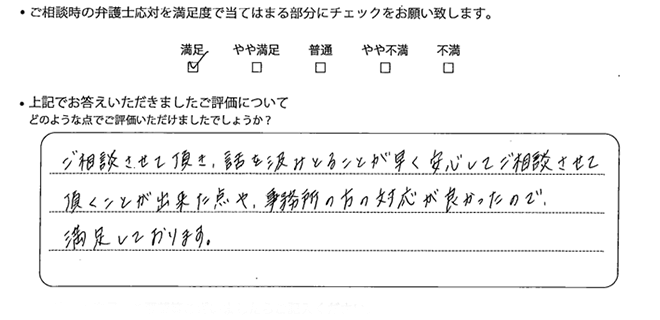 ・ご相談時の弁護士応対を満足度で当てはまる部分にチェックをお願い致します。
満足 やや満足 普通 やや不満 不満
☑ □ □ □ □
・上記でお答えいただきましたご評価について
どのような点でご評価いただけましたでしょうか？
ご相談させて頂き、話を汲みとることが早く安心してご相談させて
頂くことが出来た点や、事務所の方の対応が良かったので、
満足しております。